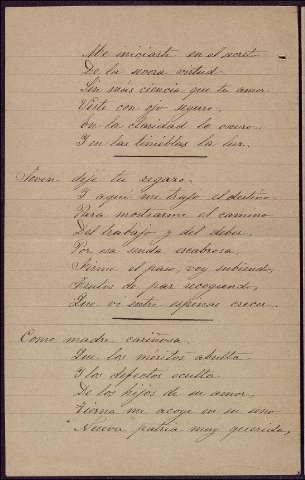 Me iniciaste en el secreto
De la severa virtud
Sin más ciencia que tu amor.
Viste con ojo seguro,
En la claridad lo oscuro,
I en las tinieblas la luz.
Joven dejé tu regazo.
I aquí me trajo el destino
Para mostrarme el camino
Del trabajo y del deber.
Por esa senda escabrosa,
Firme el paso, voy subiendo,
Frutos de paz recogiendo,
Que vi entre espinas crecer.
Como madre cariñosa
Que los méritos abulta
I los defectos oculta
De los hijos de su amor,
Tierna me acoge en su seno
Nueva patria muy querida,